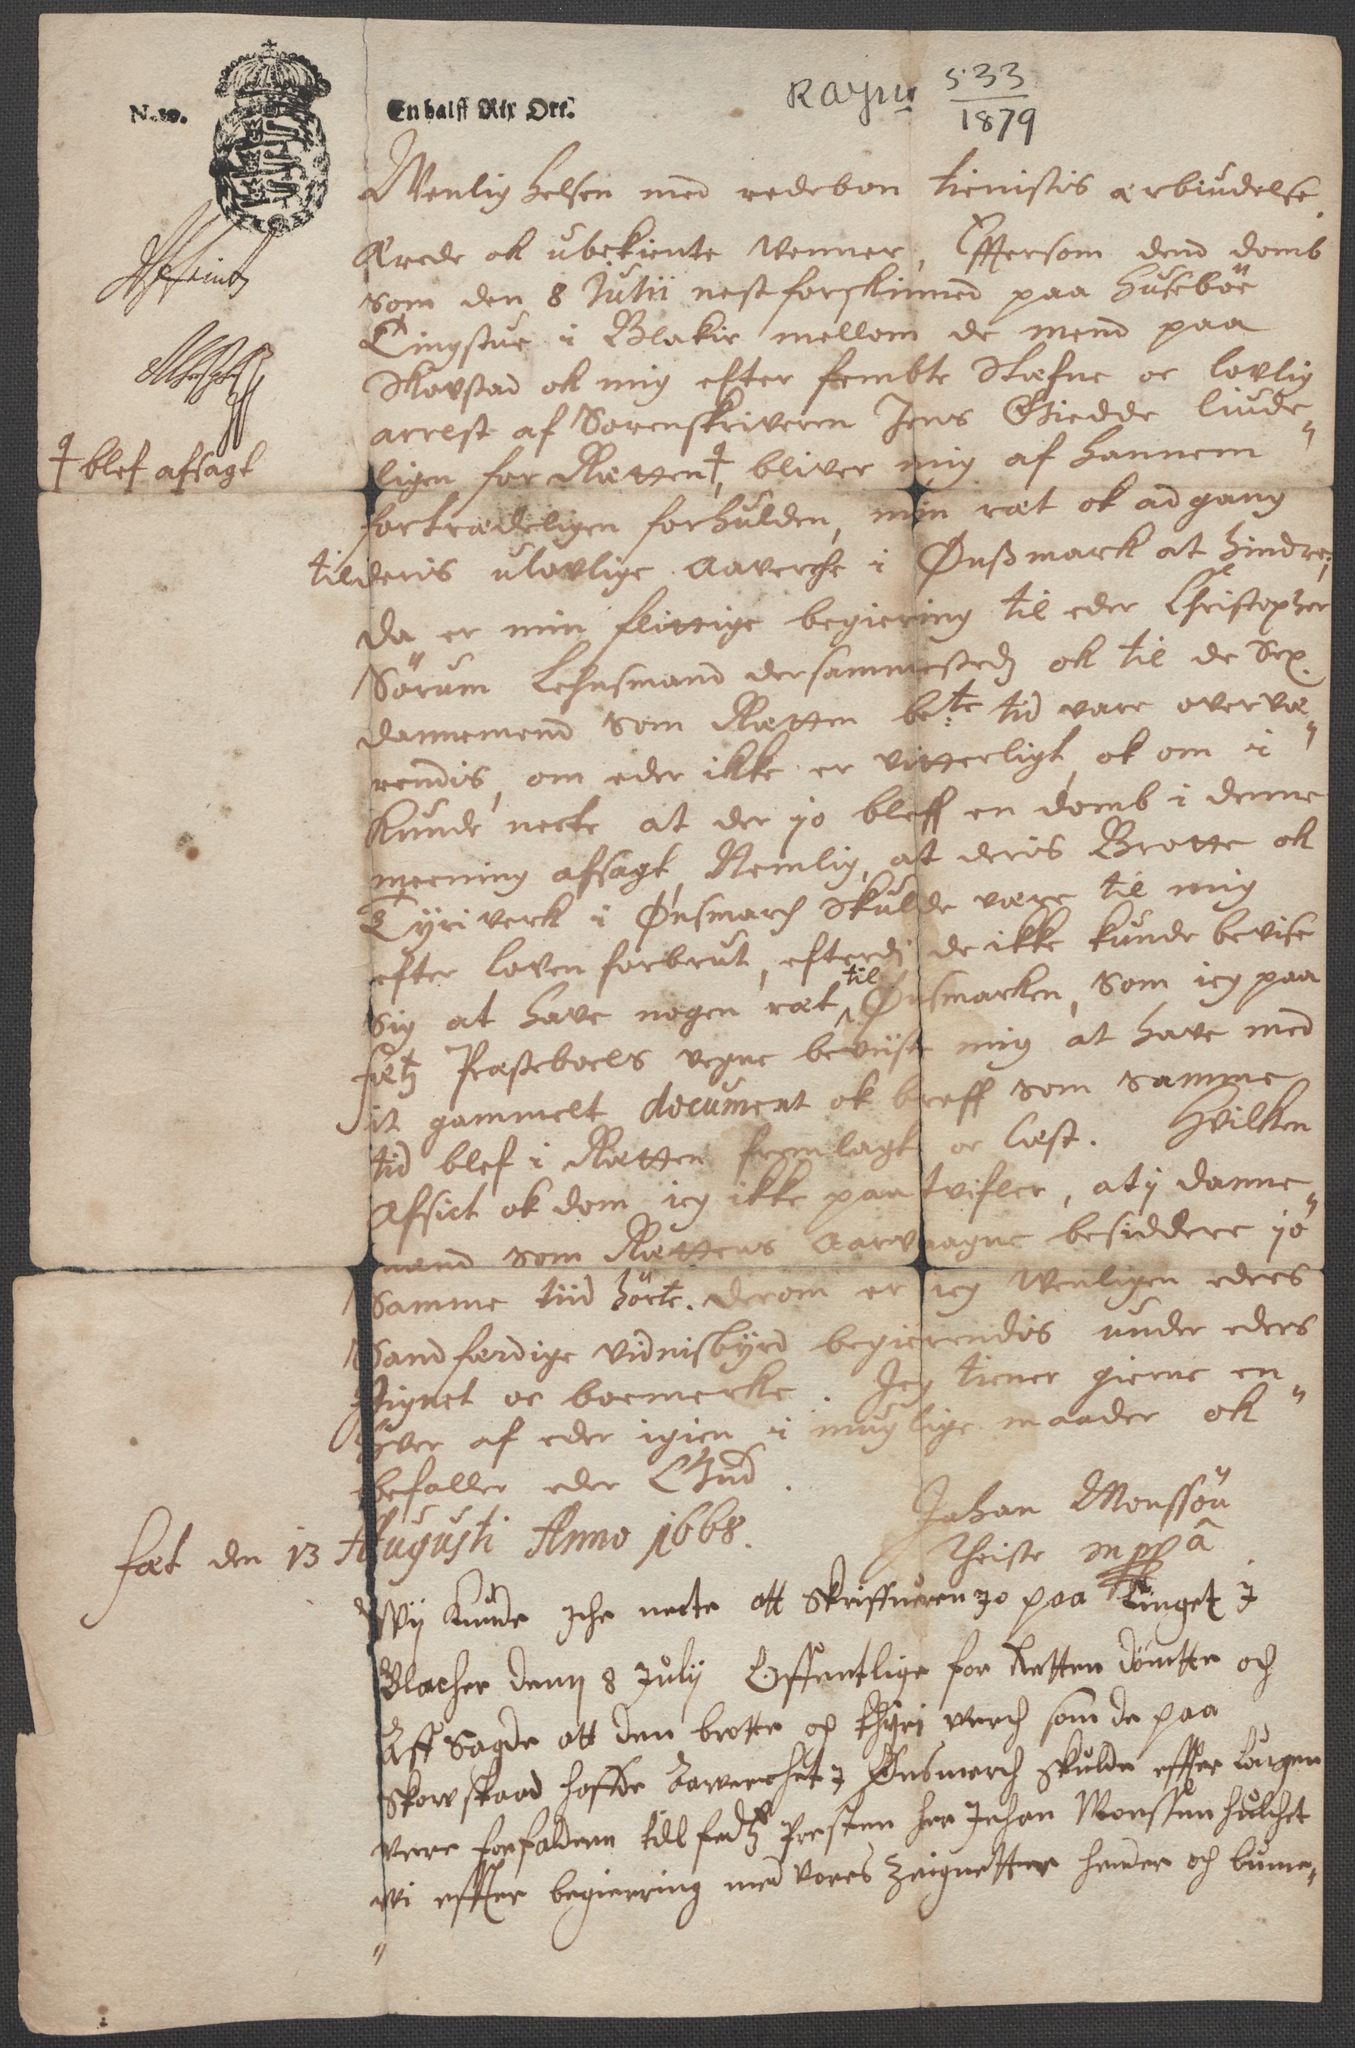 N. 10.
En halff Rix Ort.
533
1879
Wenlig helsen med redebon tienistis erbiudelse.
Ærede ok ubekiente Venner, Effersom dend domb
som den 8 Julii nest forskinned paa Huseböe
Tingstue i Blakir mellom de mend paa
Skovstad ok mig efter fembte Stæfne oc lovlig
arrest af Sorenskriveren Jens Giedde liude„
ligen for Rætten ‡, bliver mig af hannem
‡ blef afsagt
fortrædeligen forhulden, min ræt ok adgang
til deris ulovlige Aaverche i Önßmark at hindre,
da er min flittige begiering til eder Christopher
Sörum Lehnsmand dersammestedz ok til de Sex
dannemend som Rætten bete tid vare overvæ„
rendis, om eder ikke er vitterligt, ok om i
Kunde necte at der jo bleff en domb i denne
meening afsagt, Nemlig, at deris Bratte ok
Tyriverk i Önsmarch skulde være til mig
efter loven forbrut, efterdj de ikke kunde bevise
sig at have nogen ræt til Önsmarken, som ieg paa
fætz Præsteboels vegne beviste mig at have med
it gammelt document ok breff som samme
tid blef i Rætten fremlagt oc læst. Hvilken
Afsict ok dom ieg ikke paatvifler, at i danne„
mend som Rættens Aarvaagne besiddere jo
samme tiid hörte. derom er ieg Wenligen eders
Sandfærdige vidnisbyrd begierendis under eders
Signet oc boemerke. Jeg tiener gierne en„
hver af eder igien i muglige maader ok
befaller eder Gud.
Fæt den 13 Augusti Anno 1668.
Johan Monssön
Theiste mppa
Wij Kunde Iche necte att Skriffueren jo paa Tinget I
Blacher denn 8 Julij Offentlige for Retten dömtte och
Aff Sagde att den brotte och thyri verch som de paa
Skowstaad hafde Aawerchet I Önsmerch skulde effter Lougen
vere forfalden till fedtz Presten her Johan Monssen huilchet
wi effter begierring med vores Zeignetter hender och bume„